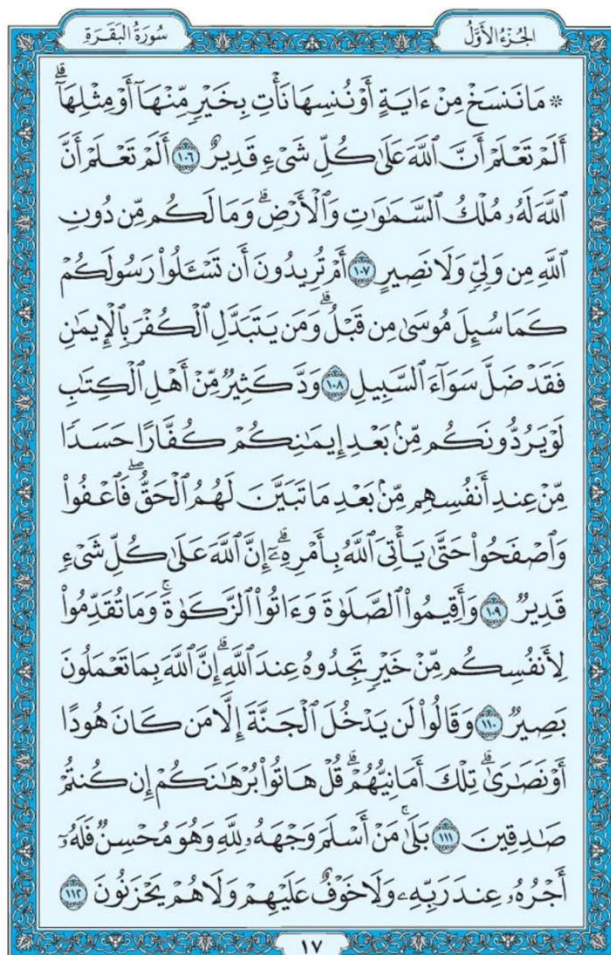 الجُزْءُ الأَوَّلُ
سُورَةُ البَقَرَةِ
۞ مَا نَنسَخْ مِنْ ءَايَةٍ أَوْ نُنسِهَا نَأْتِ بِخَيْرٍ مِّنْهَآ أَوْ مِثْلِهَآۗ
أَلَمْ تَعْلَمْ أَنَّ ٱللَّهَ عَلَىٰ كُلِّ شَىْءٍ قَدِيرٌ ١٠٦ أَلَمْ تَعْلَمْ أَنَّ
ٱللَّهَ لَهُۥ مُلْكُ ٱلسَّمَٰوَٰتِ وَٱلْأَرْضِۗ وَمَا لَكُم مِّن دُونِ
ٱللَّهِ مِن وَلِىٍّ وَلَا نَصِيرٍ ١٠٧ أَمْ تُرِيدُونَ أَن تَسْـَٔلُوا۟ رَسُولَكُمْ
كَمَا سُئِلَ مُوسَىٰ مِن قَبْلُۗ وَمَن يَتَبَدَّلِ ٱلْكُفْرَ بِٱلْإِيمَٰنِ
فَقَدْ ضَلَّ سَوَآءَ ٱلسَّبِيلِ ١٠٨ وَدَّ كَثِيرٌ مِّنْ أَهْلِ ٱلْكِتَٰبِ
لَوْ يَرُدُّونَكُم مِّنۢ بَعْدِ إِيمَٰنِكُمْ كُفَّارًا حَسَدًا
مِّنْ عِندِ أَنفُسِهِم مِّنۢ بَعْدِ مَا تَبَيَّنَ لَهُمُ ٱلْحَقُّۖ فَٱعْفُوا۟
وَٱصْفَحُوا۟ حَتَّىٰ يَأْتِىَ ٱللَّهُ بِأَمْرِهِۦٓۗ إِنَّ ٱللَّهَ عَلَىٰ كُلِّ شَىْءٍ
قَدِيرٌ ١٠٩ وَأَقِيمُوا۟ ٱلصَّلَوٰةَ وَءَاتُوا۟ ٱلزَّكَوٰةَۚ وَمَا تُقَدِّمُوا۟
لِأَنفُسِكُم مِّنْ خَيْرٍ تَجِدُوهُ عِندَ ٱللَّهِۗ إِنَّ ٱللَّهَ بِمَا تَعْمَلُونَ
بَصِيرٌ ١١٠ وَقَالُوا۟ لَن يَدْخُلَ ٱلْجَنَّةَ إِلَّا مَن كَانَ هُودًا
أَوْ نَصَٰرَىٰۗ تِلْكَ أَمَانِيُّهُمْۗ قُلْ هَاتُوا۟ بُرْهَٰنَكُمْ إِن كُنتُمْ
صَٰدِقِينَ ١١١ بَلَىٰۚ مَنْ أَسْلَمَ وَجْهَهُۥ لِلَّهِ وَهُوَ مُحْسِنٌ فَلَهُۥٓ
أَجْرُهُۥ عِندَ رَبِّهِۦ وَلَا خَوْفٌ عَلَيْهِمْ وَلَا هُمْ يَحْزَنُونَ ١١٢
١٧